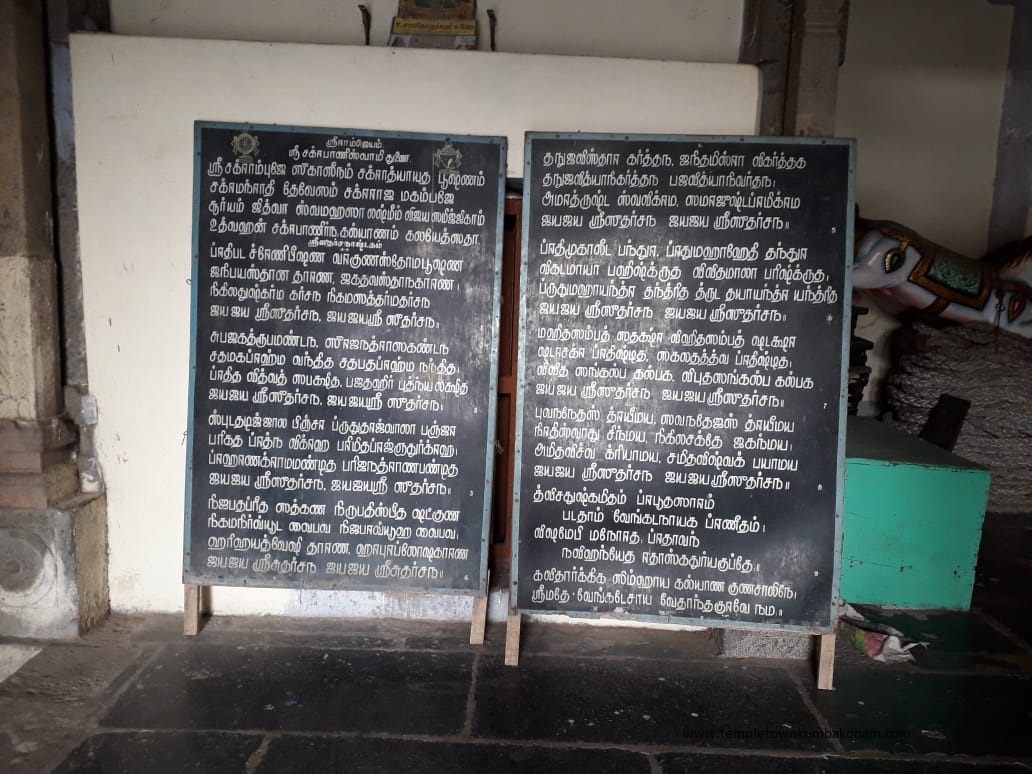 ஸ்ரீராம்ஜெயம்.
ஸ்ரீ சக்ரபாணிஸ்வாமி துணை.
ஸ்ரீ சக்ராம்புஜே ஸகாஸீநம் சக்ராத்யாயுத பூஷணம்
சக்ராமராதி தேவேஸம் சக்ரராஜ மகம்பஜே
சூர்யம் ஜித்வா ஸ்வமஹஸா லக்ஷ்மீம் விஜய ஸமிஜ்ஞிகாம்
உத்வஹன் சக்ரபாணிர்ந: கல்யாணம் கலயேத்ஸதா.
ஸ்ரீஸுதர்சநாஷ்டகம்
ப்ரதிபட ச்ரேணிபீஷண வரகுணஸ்தோமபூஷண
ஜநிபயஸ்தான தாரண, ஜகதவஸ்தாநகாரண।
நிகிலதுஷ்கர்ம கர்சந நிகமஸத்தர்மதர்சந
ஜய ஜய ஸ்ரீஸுதர்சந, ஜயஜயஸ்ரீ ஸுதர்சந॥
சுபஜகத்ரூபமண்டந, ஸுரஜநத்ராஸகண்டந
சதமகப்ரஹ்ம வந்தித சதபதப்ரஹ்ம நந்தித।
ப்ரதித வித்வத் ஸபக்ஷித, பஜதஹிர் புத்ந்யலக்ஷித
ஜயஜய ஸ்ரீஸுதர்சந, ஜயஜயஸ்ரீ ஸுதர்சந॥ 2
ஸ்புடதடிஜ்ஜால பிஞ்சர ப்ருதுதரஜ்வாலா பஞ்ஜர
பரிகத ப்ரத்ந விக்ரஹ பரிமிதப்ரஜ்ஞதுர்க்ரஹ।
ப்ரஹரணக்ராமமண்டித பரிஜநத்ராணபண்டித
ஜயஜய ஸ்ரீஸுதர்சந, ஜயஜயஸ்ரீ ஸுதர்சந॥ 3
நிஜபதப்ரீத ஸத்கண நிருபதிஸ்பீத ஷட்குண
நிகமநிர்வ்யூட வைபவ நிஜபரவ்யூஹ வைபவ।
ஹரிஹயத்வேஷி தாரண, ஹரபுரப்லோஷகாரண
ஜயஜய ஸ்ரீஸுதர்சந ஜயஜய ஸ்ரீஸுதர்சந॥ 4
தநுஜவிஸ்தார கர்த்தந, ஜநிதமிஸ்ரா விகர்த்தக
தநுஜவித்யாநிகர்த்தந பஜவித்யாநிவர்தந।
அமரத்ருஷ்ட ஸ்வவிக்ரம, ஸமரஜுஷ்டப்ரமிக்ரம
ஜயஜய ஸ்ரீஸுதர்சந ஜயஜய ஸ்ரீஸுதர்சந॥ 5
ப்ரதிமுகாலீட பந்துர, ப்ருதுமஹாஹேதி தந்துர
விகடமாயா பஹிஷ்க்ருத விவிதமாலா பரிஷ்க்ருத।
ப்ருதுமஹாயந்த்ர தந்த்ரித த்ருட தயாயந்த்ர யந்த்ரித
ஜயஜய ஸ்ரீஸுதர்சந ஜயஜய ஸ்ரீஸுதர்சந॥
மஹிதஸம்பத் ஸதக்ஷர விஹிதஸம்பத் ஷடக்ஷர
ஷடரசக்ர ப்ரதிஷ்டித, ஸகலதத்த்வ ப்ரதிஷ்டித।
விவித ஸங்கல்ப கல்பக, விபுதஸங்கல்ப கல்பக
ஜயஜய ஸ்ரீஸுதர்சந ஜயஜய ஸ்ரீஸுதர்சந॥ 7
புவநநேதஸ் த்ரயீமய, ஸவநதேஜஸ் த்ரயீமய
நிரதிஸ்வாது சிந்மய, நிகிலசக்தே ஜகந்மய।
அமிதவிச்வ க்ரியாமய, சமிதவிஷ்வக் பயாமய
ஜயஜய ஸ்ரீஸுதர்சந ஜயஜய ஸ்ரீஸுதர்சந॥ 8
த்விசதுஷ்கமிதம் ப்ரபூதஸாரம்
படதாம் வேங்கடநாயக ப்ரணீதம்।
விஷமேபி மநோரத: ப்ரதாவந்
நவிஹந்யேத ரதாங்கதுர்யகுப்தே:॥ 9
கவிதார்க்கிக ஸிம்ஹாய கல்யாண குணசாலிநே।
ஸ்ரீமதே வேங்கடேசாய வேதாந்தகுரவே நம:॥
www.templetownkumbakonam.com